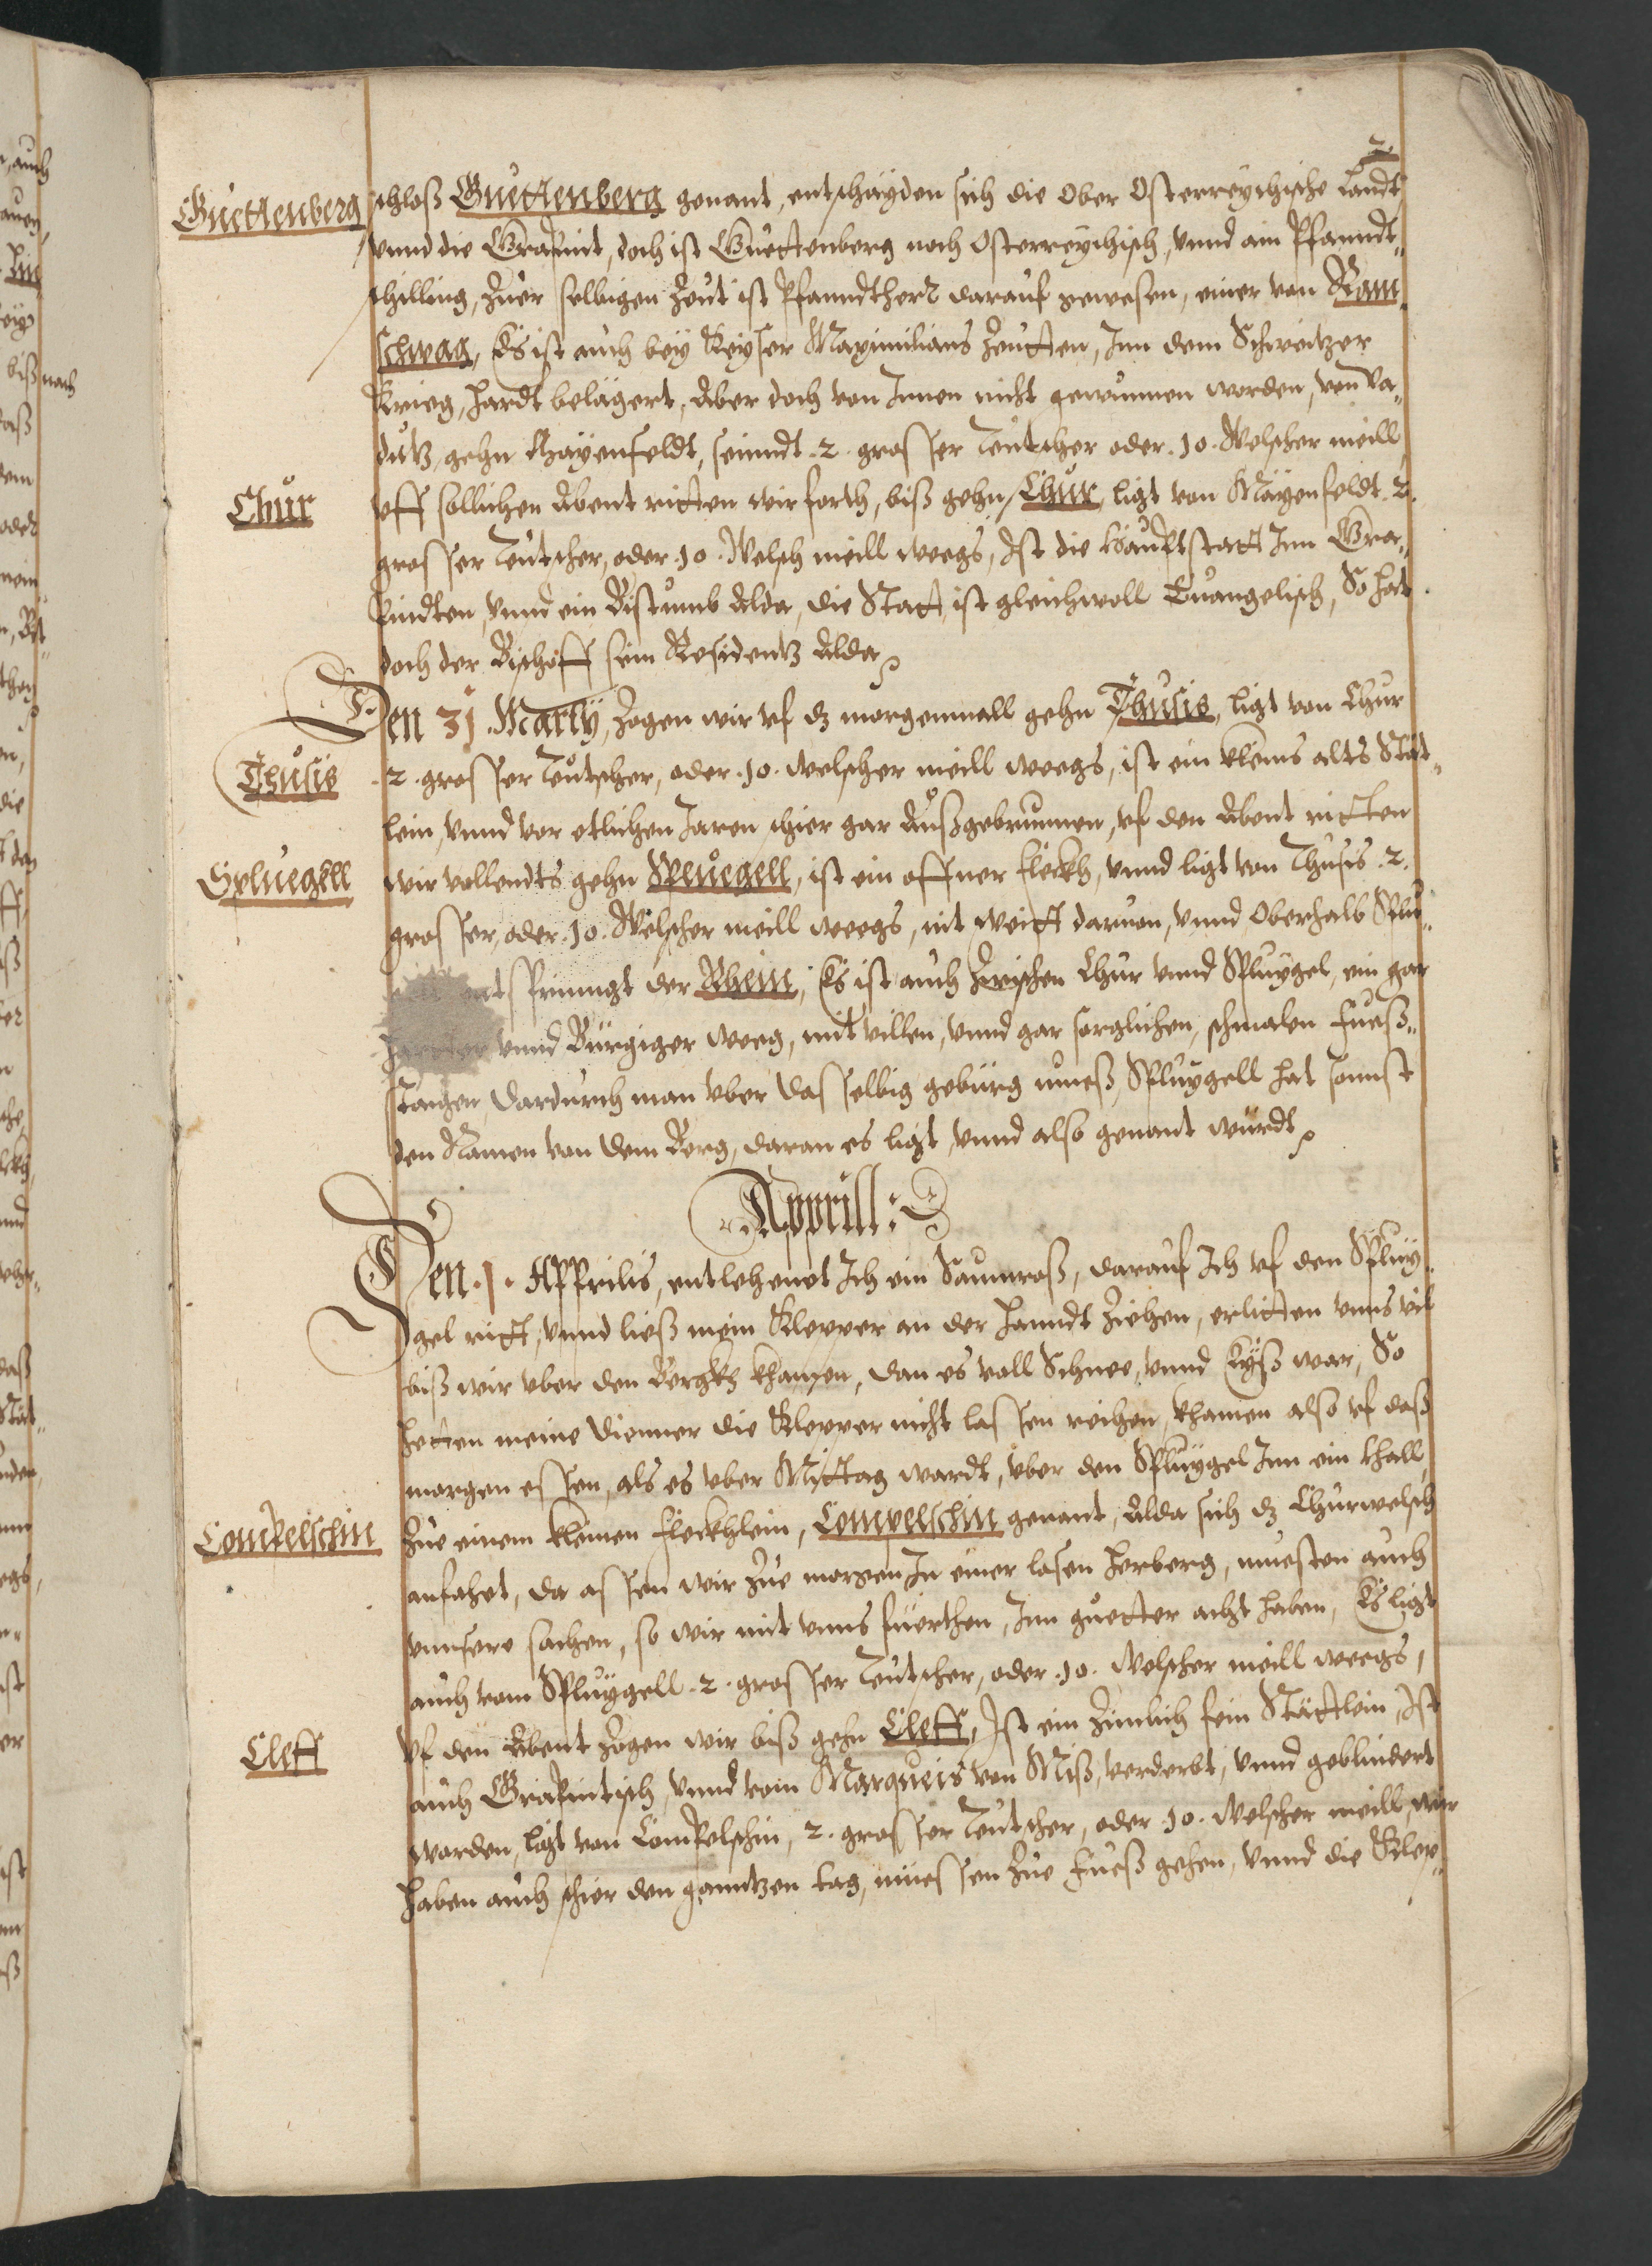 2.
Guettenberg
schloß Guettenberg genant, entschayden sich die Ober Osterreychische Landt,
vnnd die Grapint, doch ist Guettenberg noch Osterreychisch, vnnd ain Pfanndt„
schilling, Zuer selbigen Zeut ist Pfanndtherr darauf gewesen, einer von Ram„
schwag, Es ist auch bey Keyser Maximilians Zeutten, Inn dem Schweitzer
Krieg, hardt belägert, Aber doch von Innen nicht gewunnen worden, von Va„
dutz, gehn Mayenfeldt, seinndt .2. grosser Teutscher oder .10. Welscher meill,
Chur
vff sollichen Abent ritten wir forth, biß gehn Chur, ligt von Mayenfeldt .2.
grosser Teutscher, oder .10. Welsch meill weegs, Ist die Hauptstatt Inn Gra„
bindten, vnnd ein Bistumb Alda, die Statt ist gleichwoll Euangelisch, So hat
doch der Bischoff sein Residentz Alda
Den 31. Martÿ, Zogen wir vf dz morgenmall gehn Thusis, ligt von Chur
Thusis
.2. grosser Teutscher, oder .10. welscher meill weegs, ist ein kleins alts Stät„
lein, vnnd vor etlichen Jaren schier gar Außgebrunnen, vf den Abent ritten
Spluegell
wir vollendts gehn Spluegell, ist ein offner Fleckh, vnnd ligt von Thusis .2.
grosser, oder .10. Welscher meill weegs, nit weitt daruon, vnnd Oberhalb Splu„
entspringt der Rhein, Es ist auch Zwischen Chur vnnd Spluygel, ein gar
vnnd Bürgiger weeg, mit villen, vnnd gar sorglichen, schmalen Fueß„
staigen, dardurch man vber dasselbig gebürg mueß, Spluygell hat sonnst
den Namen von dem Berg, daran es ligt, vnnd also genant würdt
Apprill:
Den .1. Apprilis, entlehenet Ich ein Saumroß, darauf Ich vf den Spluy„
gel ritt, vnnd ließ mein Klepper an der Hanndt Ziehen, erlitten vnns vil
biß wir vber den Bergkh khamen, dan es voll Schnee, vnnd Eyß war, So
hetten meine Dienner die Klepper nicht lassen reihen, khamen also vf daß
morgen essen, als es vber Mittag wardt, vber den Spluygel Inn ein thall,
Compelschin
Zue einem kleinen Fleckhlein, Compelschin genant, Alda sich dz Churwelsch
anfahet, da assen wir Zue morgen In einer losen Herberg, muesten auch
vnnsere sachen, so wir mit vnns fuerthen, Inn guetter acht haben, Es ligt
auch vom Spluygell .2. grosser Teutscher, oder .10. Welscher meill weegs,
Cleff
Vf den Abent Zogen wir biß gehn Cleff, Ist ein Zimlich fein Stättlein, Ist
auch Grapintisch, vnnd vom Marqueis von Miß, verderbt, vnnd geblindert
worden, ligt von Compelschin, 2. grosser Teutscher, oder .10. Welscher meill, wir
haben auch schier den ganntzen tag, müessen Zue Fueß gehen, vnnd die Klep„